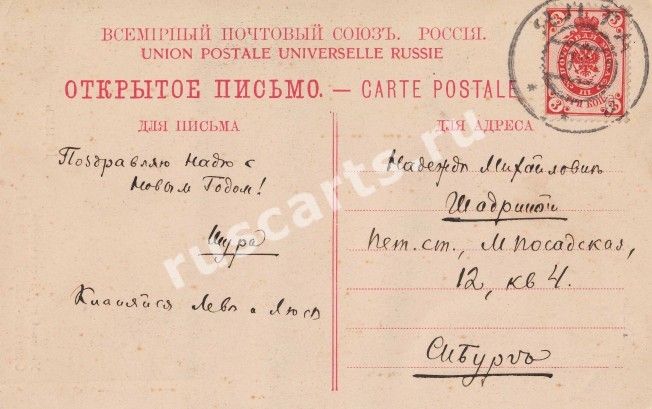 ВСЕМIРНЫЙ ПОЧТОВЫЙ СОЮЗЪ. РОССIЯ.
UNION POSTALE UNIVERSELLE RUSSIE
ОТКРЫТОЕ ПИСЬМО. — CARTE POSTALE
ДЛЯ ПИСЬМА
ДЛЯ АДРЕСА
Поздравляю Надю с
Новым Годом!
Шура
Кланяйся Леве и Люсе
Надежде Михайловне
Шадриной
Пет. ст., М Посадская,
12, кв 4.
С.П.Бургъ
3
3
3
3
ruscarts.ru